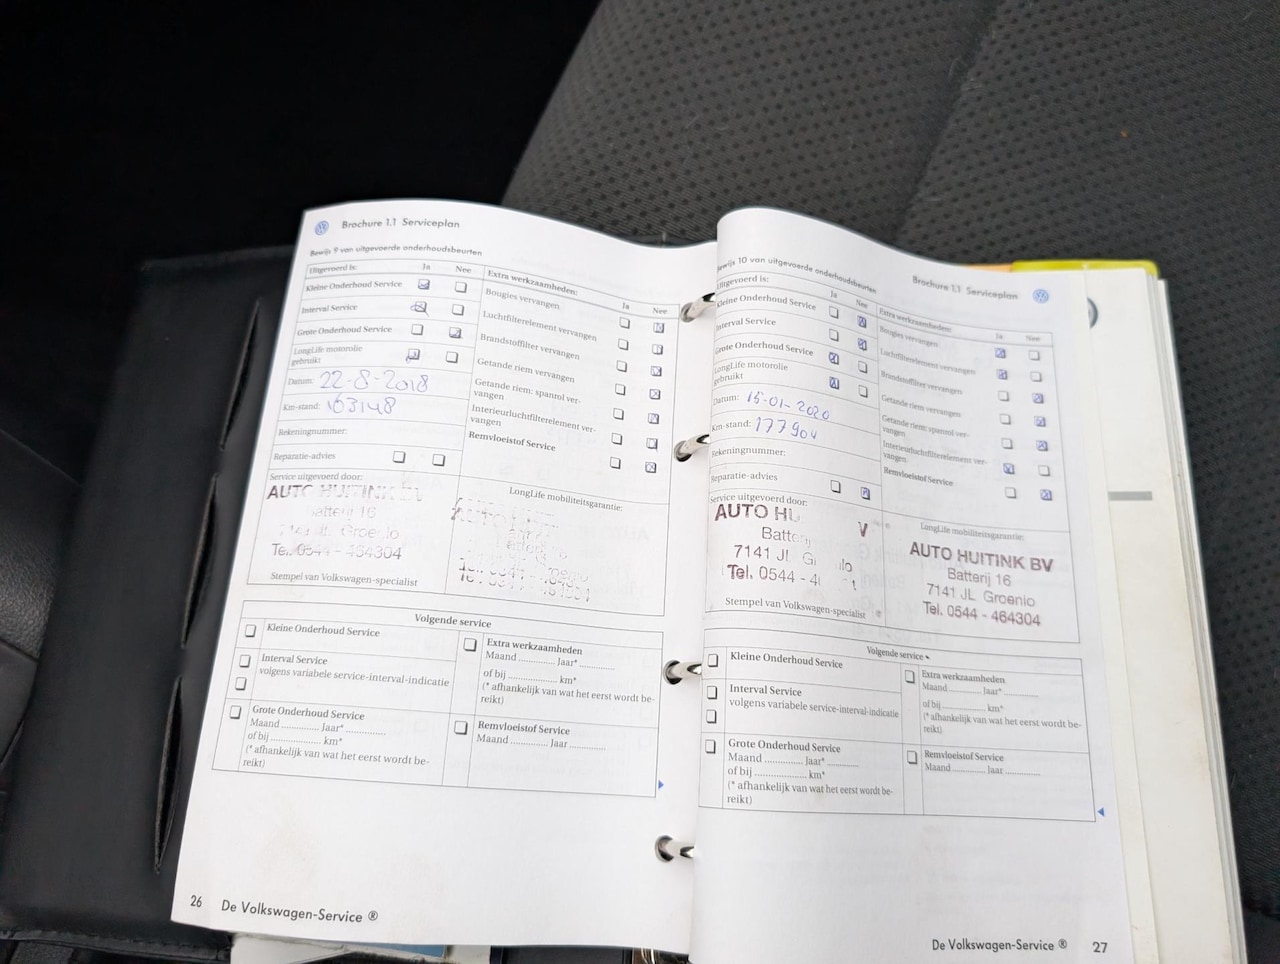 Brochure 1.1 Serviceplan
Bewijs 9 van uitgevoerde onderhoudsbeurten
Uitgevoerd is: Ja Nee
Kleine Onderhoud Service
Interval Service
Grote Onderhoud Service
LongLife motorolie
gebruikt
Datum: 22-8-2018
Km-stand: 163148
Rekeningnummer:
Reparatie-advies
Service uitgevoerd door:
AUTO HUITINK BV
Batterij 16
Groenlo
Tel. 0544 - 464304
Stempel van Volkswagen-specialist
Extra werkzaamheden: Ja Nee
Bougies vervangen
Luchtfilterelement vervangen
Brandstoffilter vervangen
Getande riem vervangen
Getande riem: spanrol ver-
vangen
Interieurluchtfilterelement ver-
vangen
Remvloeistof Service
LongLife mobiliteitsgarantie:
Volgende service
Kleine Onderhoud Service
Interval Service
volgens variabele service-interval-indicatie
Grote Onderhoud Service
Maand ............ Jaar* ............
of bij ............ km*
(* afhankelijk van wat het eerst wordt be-
reikt)
Extra werkzaamheden
Maand ............ Jaar* ............
of bij ............ km*
(* afhankelijk van wat het eerst wordt be-
reikt)
Remvloeistof Service
Maand ............ Jaar ............
26 De Volkswagen-Service ®
Brochure 1.1 Serviceplan
Bewijs 10 van uitgevoerde onderhoudsbeurten
Uitgevoerd is: Ja Nee
Kleine Onderhoud Service
Interval Service
Grote Onderhoud Service
LongLife motorolie
gebruikt
Datum: 15-01-2020
Km-stand: 177904
Rekeningnummer:
Reparatie-advies
Service uitgevoerd door:
AUTO HU V
Batterij
7141 JL G lo
Tel. 0544 - 4 1
Stempel van Volkswagen-specialist
Extra werkzaamheden: Ja Nee
Bougies vervangen
Luchtfilterelement vervangen
Brandstoffilter vervangen
Getande riem vervangen
Getande riem: spanrol ver-
vangen
Interieurluchtfilterelement ver-
vangen
Remvloeistof Service
LongLife mobiliteitsgarantie:
AUTO HUITINK BV
Batterij 16
7141 JL Groenlo
Tel. 0544 - 464304
Volgende service
Kleine Onderhoud Service
Interval Service
volgens variabele service-interval-indicatie
Grote Onderhoud Service
Maand ............ Jaar* ............
of bij ............ km*
(* afhankelijk van wat het eerst wordt be-
reikt)
Extra werkzaamheden
Maand ............ Jaar* ............
of bij ............ km*
(* afhankelijk van wat het eerst wordt be-
reikt)
Remvloeistof Service
Maand ............ Jaar ............
De Volkswagen-Service ® 27